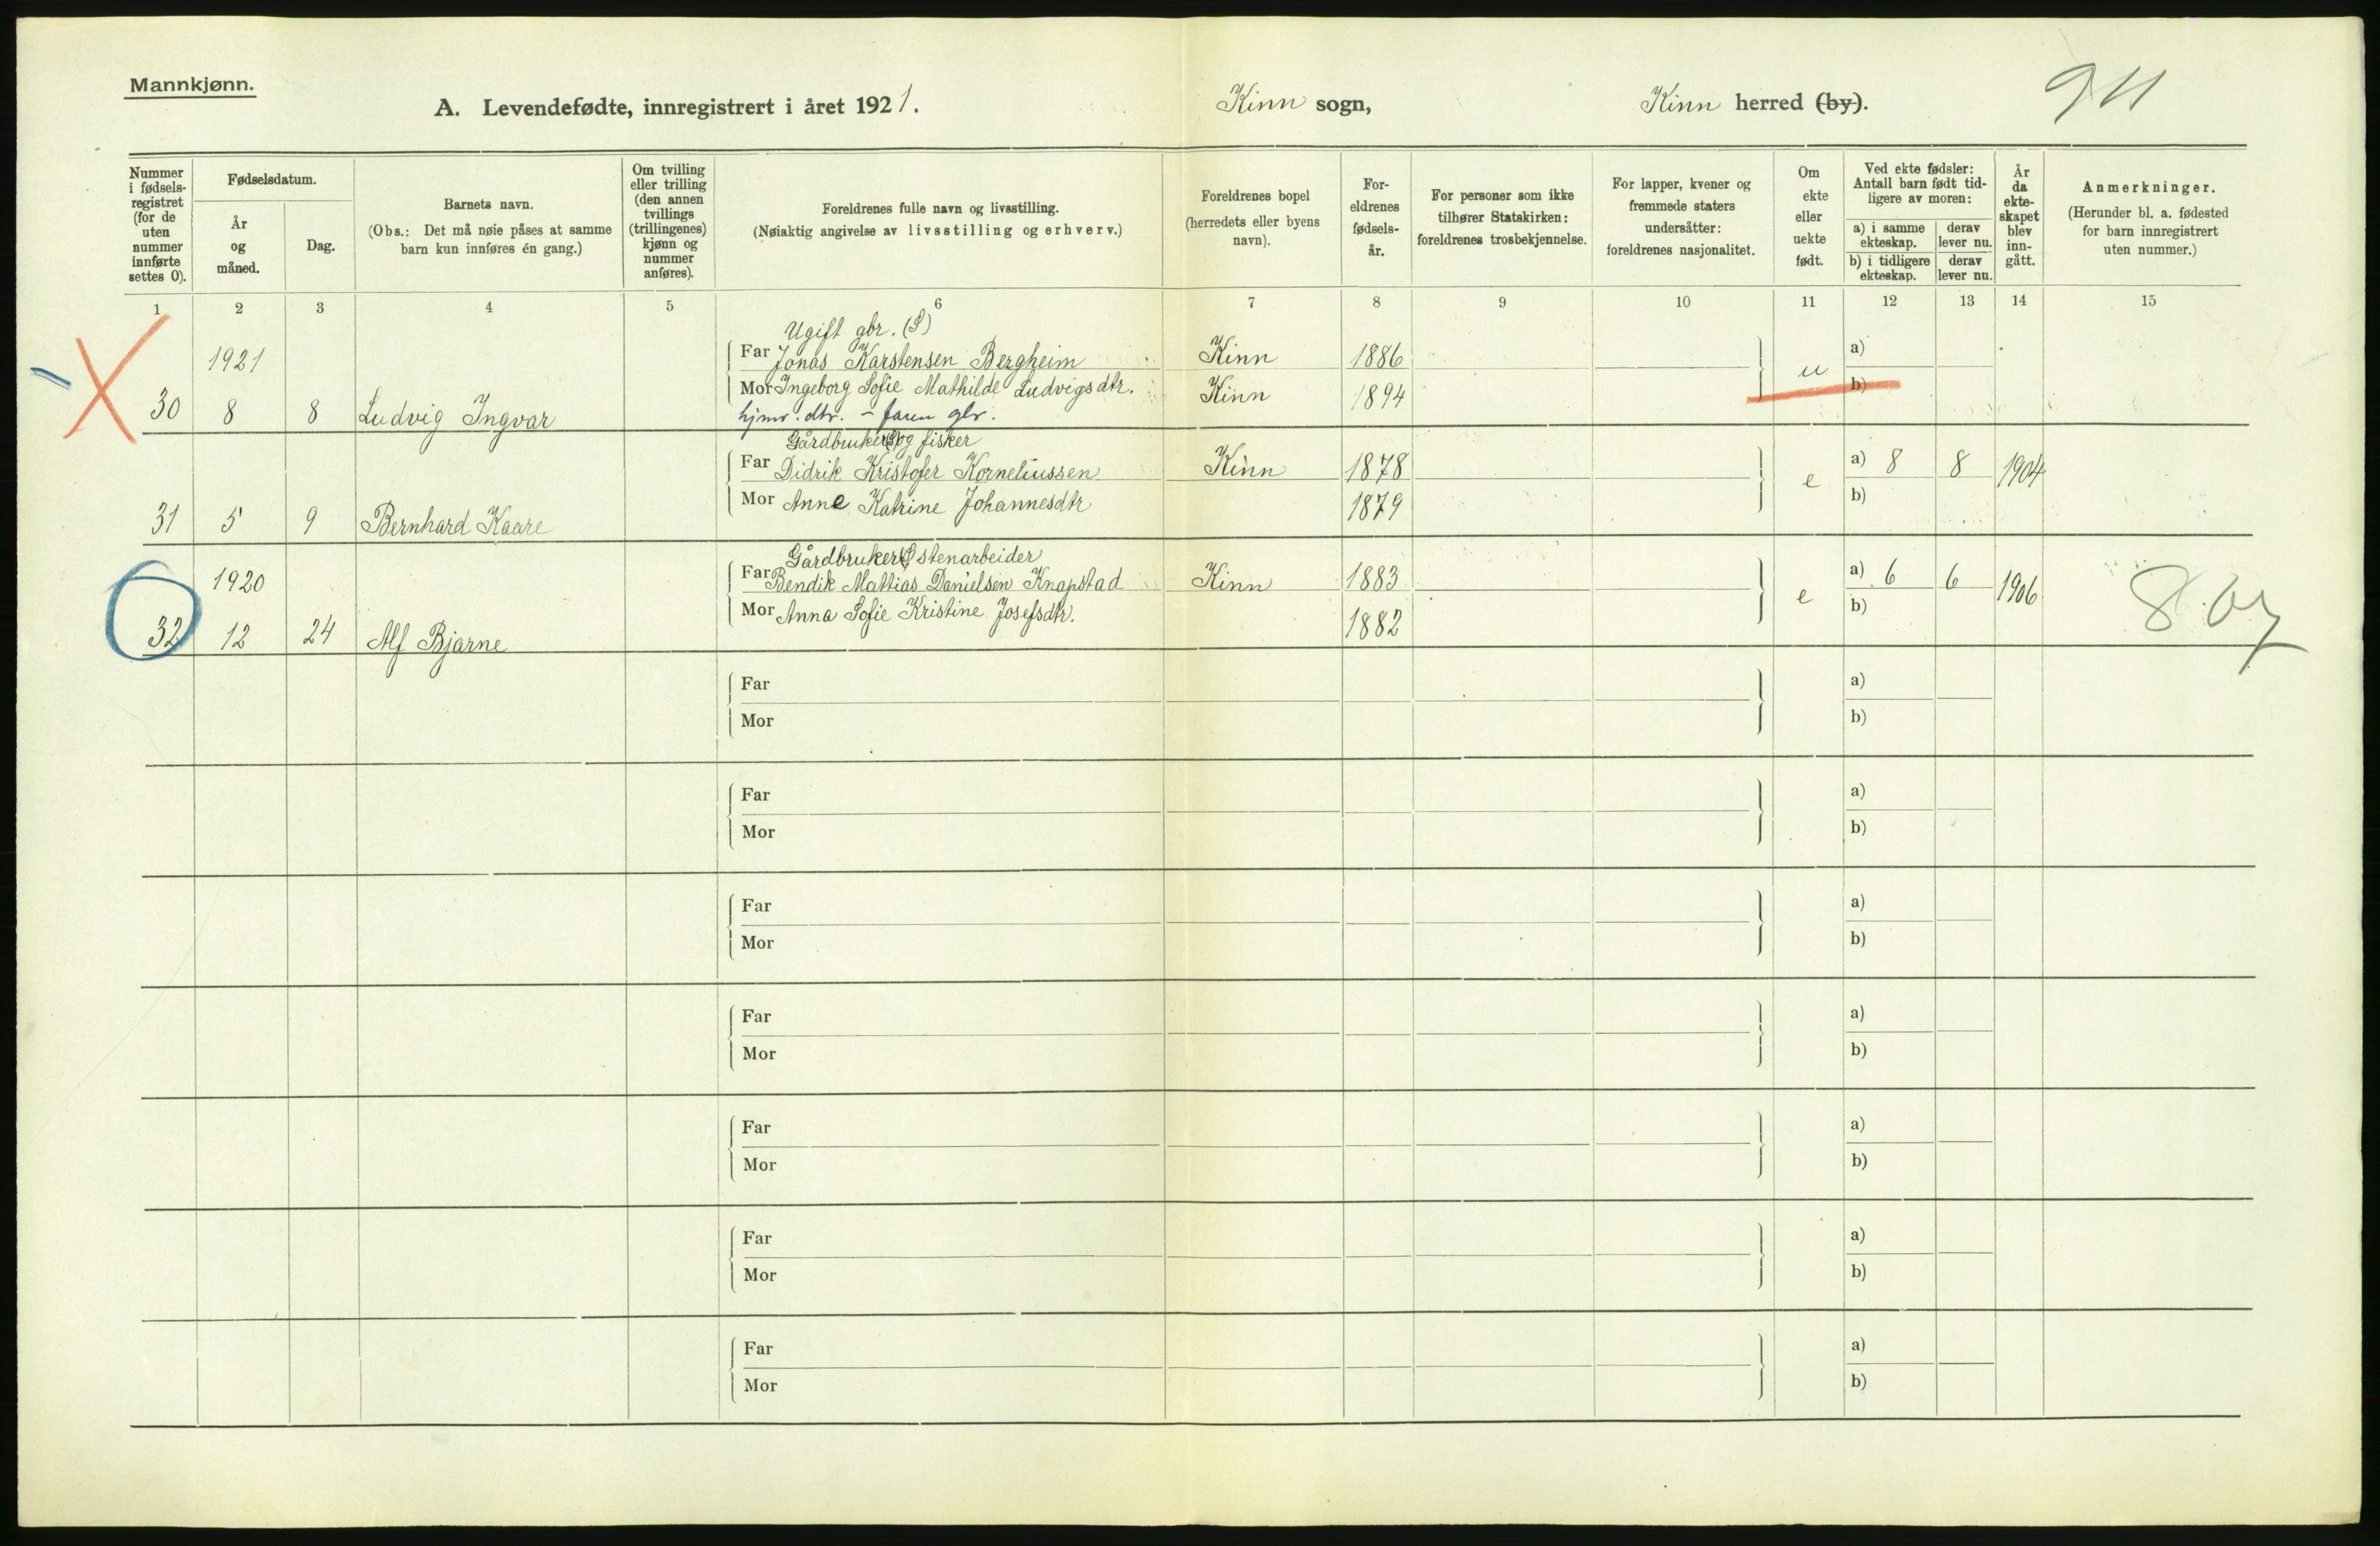 Mannkjønn.
A. Levendefødte, innregistrert i året 1921.
Kinn sogn,
Kinn herred (by).
Nummer i fødsels-registret (for de uten nummer innførte settes 0).
Fødselsdatum.
År og måned.
Dag.
Barnets navn.
(Obs.: Det må nøie påses at samme barn kun innføres én gang.)
Om tvilling eller trilling (den annen tvillings (trillingenes) kjønn og nummer anføres).
Foreldrenes fulle navn og livsstilling.
(Nøiaktig angivelse av livsstilling og erhverv.)
Foreldrenes bopel (herredets eller byens navn).
For-eldrenes fødsels-år.
For personer som ikke tilhører Statskirken: foreldrenes trosbekjennelse.
For lapper, kvener og fremmede staters undersåtter: foreldrenes nasjonalitet.
Om ekte eller uekte født.
Ved ekte fødsler: Antall barn født tid-ligere av moren:
a) i samme ekteskap.
derav lever nu.
b) i tidligere ekteskap.
derav lever nu.
År da ekte-skapet blev inn-gått.
Anmerkninger.
(Herunder bl. a. fødested for barn innregistrert uten nummer.)
1 2 3 4 5 6 7 8 9 10 11 12 13 14 15
Ugift gbr. (S)
1921 Far Jonas Karstensen Bergheim Kinn 1886 a)
Mor Ingeborg Sofie Mathilde Ludvigsdtr. Kinn 1894 u b)
30 8 8 Ludvig Ingvar
Gårdbruker (S) og fisker
Far Didrik Kristofer Korneliussen Kinn 1878 e a) 8 8 1904
Mor Anne Katrine Johannesdtr 1879 b)
31 5 9 Bernhard Kaare
Gårdbruker (S) stenarbeider
1920 Far Bendik Mattias Danielsen Knapstad Kinn 1883 e a) 6 6 1906
Mor Anna Sofie Kristine Josefsdtr. 1882 b)
32 12 24 Alf Bjarne
Far a)
Mor b)
Far a)
Mor b)
Far a)
Mor b)
Far a)
Mor b)
Far a)
Mor b)
Far a)
Mor b)
Far a)
Mor b)